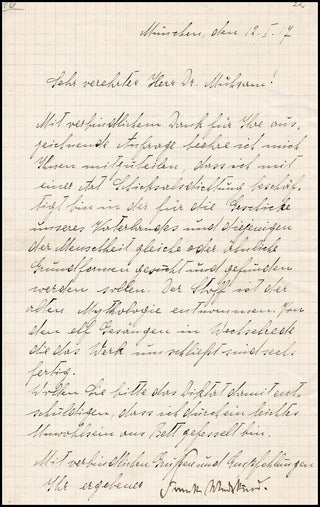 München, den 12. I. 17
Sehr verehrter Herr Dr. Mühsam!
Mit verbindlichem Dank für Ihre aus,
zeichnende Anfrage beehre ich mich
Ihnen mitzuteilen, dass ich mit
einer Art Schicksalsdichtung beschäf,
tigt bin in der für die Geschicke
unseres Vaterlandes und diejenigen
der Menschheit gleiche oder ähnliche
Grundformen gesucht und gefunden
werden sollen. Der Stoff ist der
alten Mythologie entnommen. Von
den elf Gesängen in Wechselrede
die das Werk umschließt sind sechs
fertig.
Wollen Sie bitte das Diktat damit ent,
schuldigen, dass ich durch ein leichtes
Unwohlsein ans Bett gefesselt bin.
Mit verbindlichen Grüßen und Empfehlungen
Ihr ergebener Frank Wedekind.